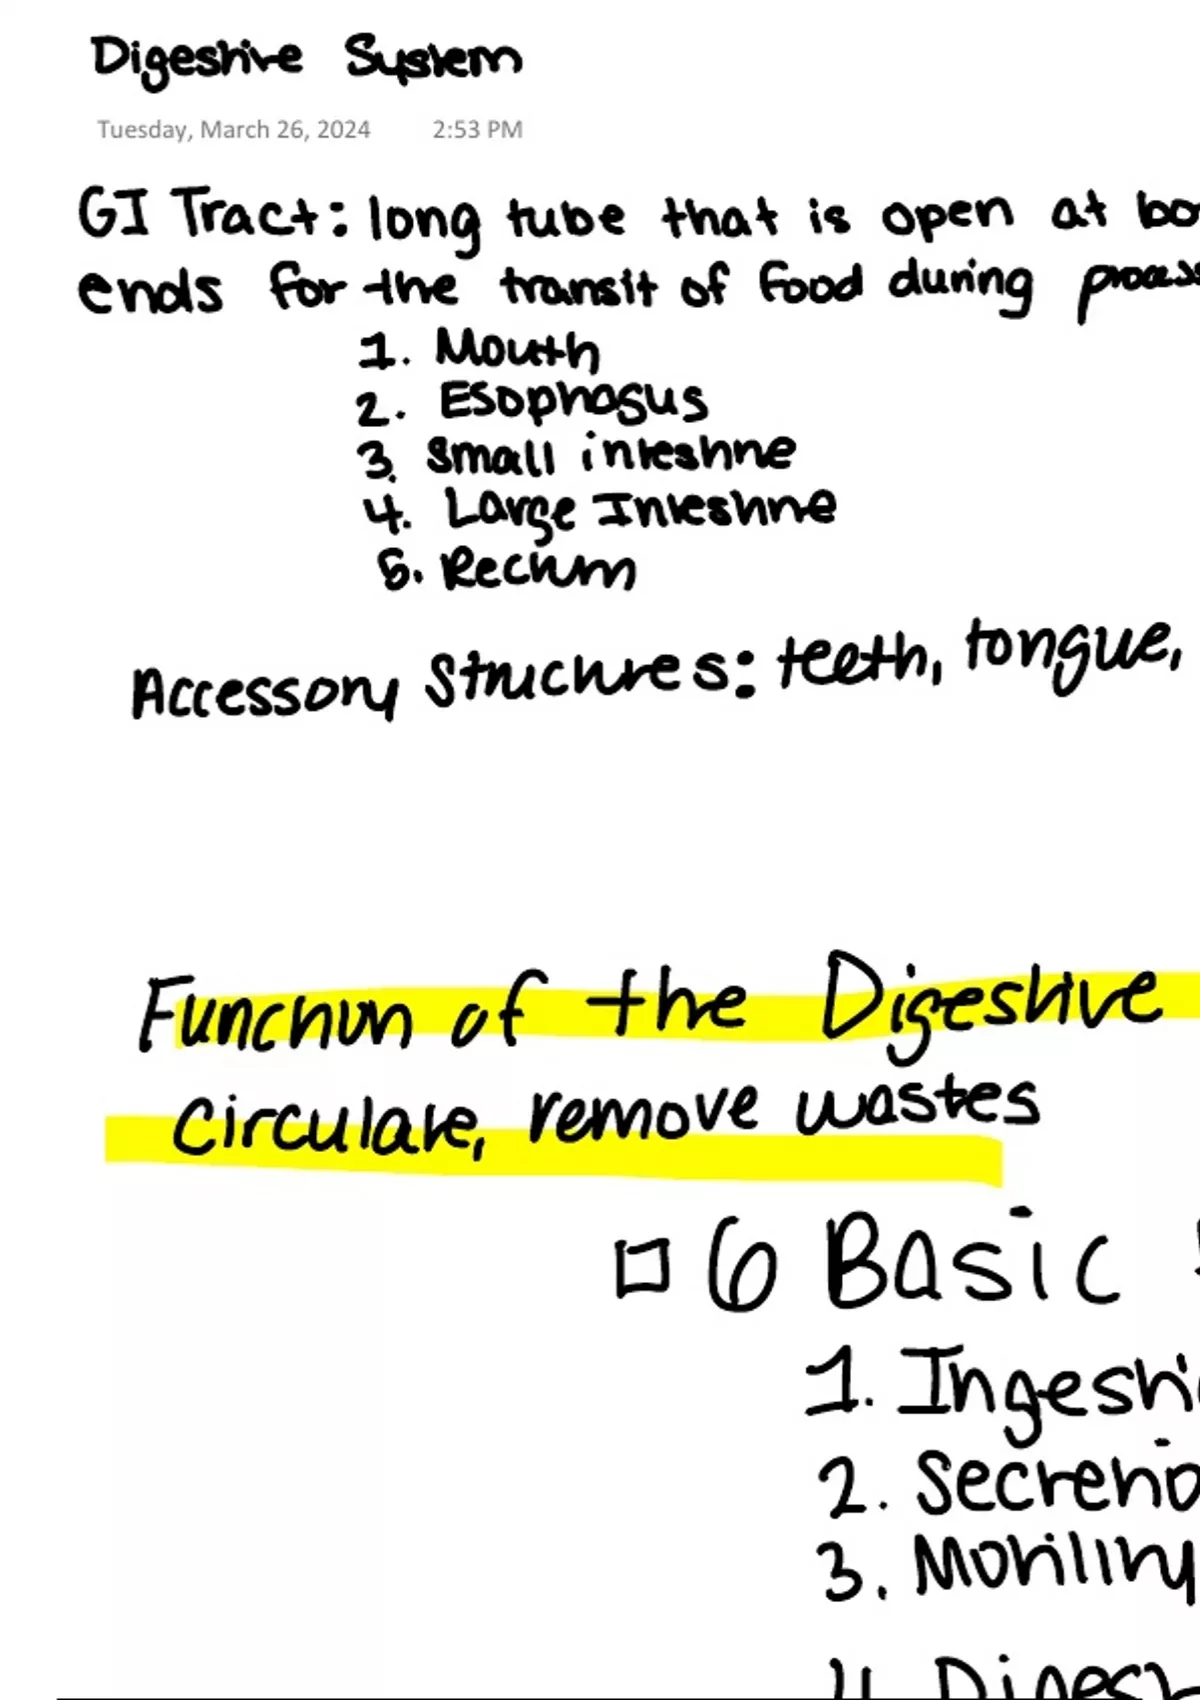 Digestive System
Tuesday, March 26, 2024 2:53 PM
GI Tract: long tube that is open at
ends for the transit of food during
1. Mouth
2. Esophagus
3. Small intestine
4. Large Intestine
5. Rectum
Accessory Structures: teeth, tongue,
Function of the Digestive
circulate, remove wastes
6 Basic
1. Ingestio
2. Secretio
3. Motility
4. Digest